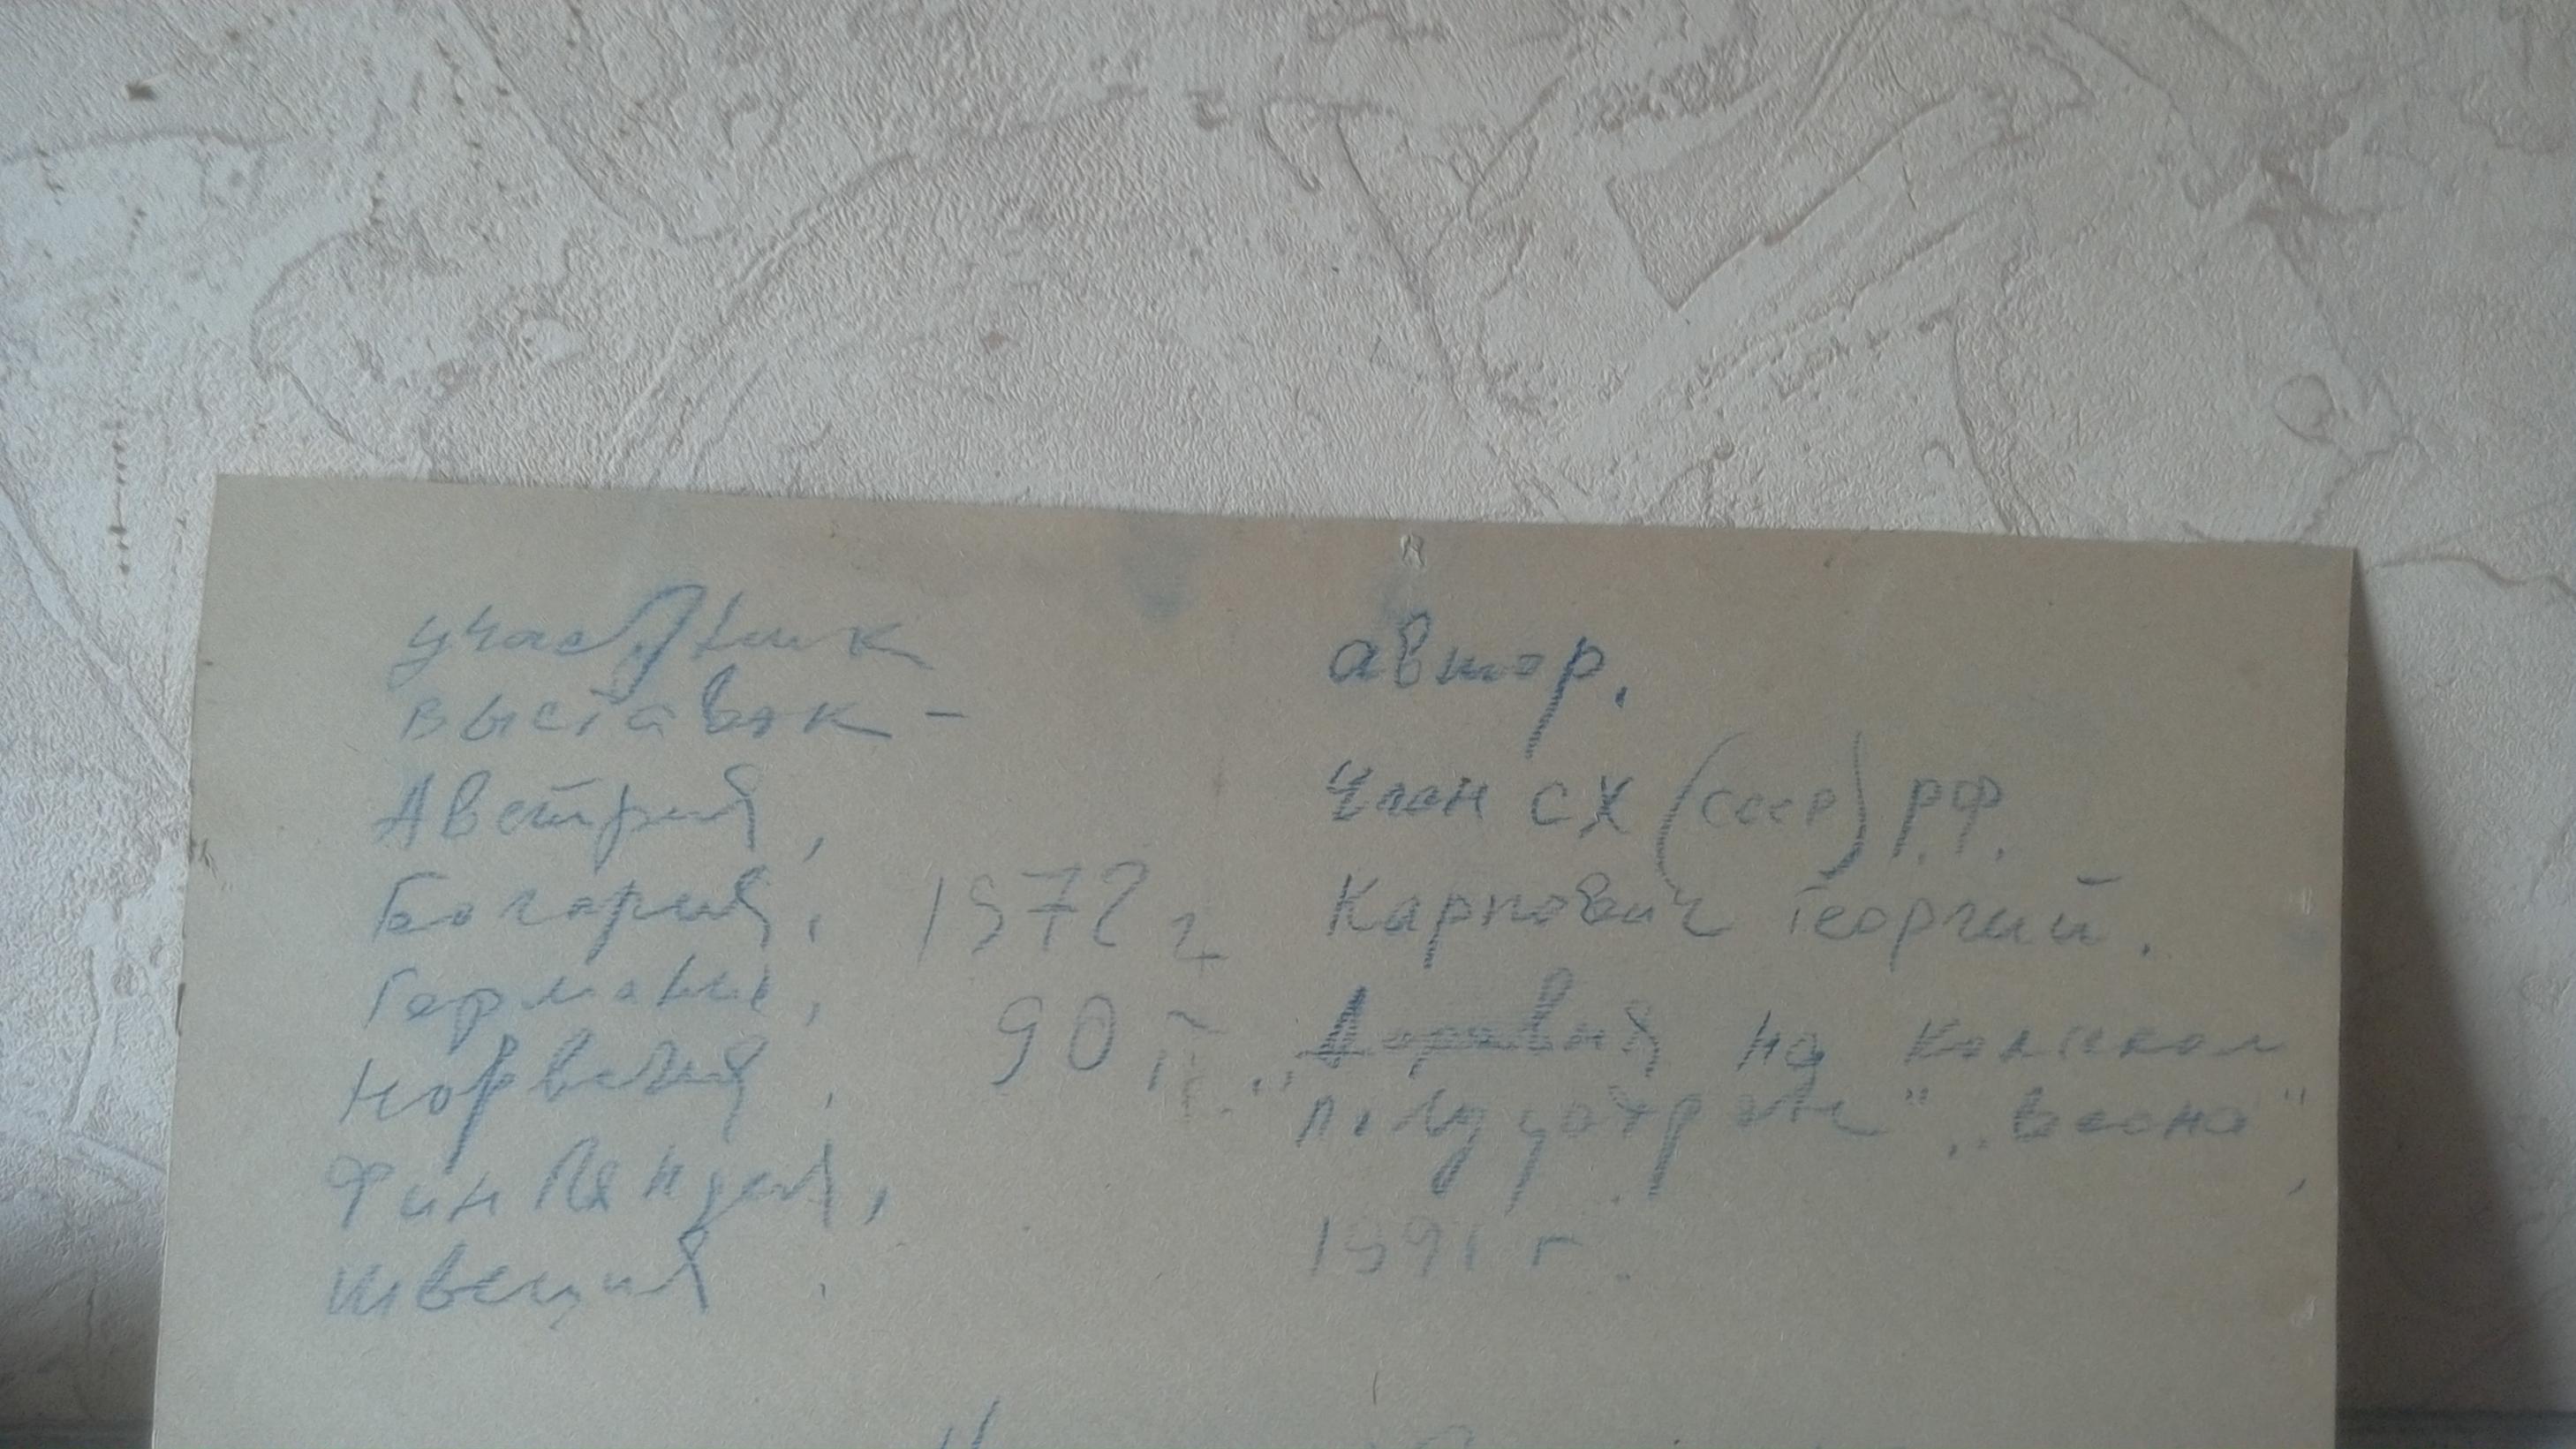 участник
выставок –
Австрия,
Богария, 1972 г
Германия, 90 гг.
Норвегия,
Финляндия,
Швеция.
автор.
Член СХ (СССР) Р.Ф.
Карпович Георгий.
на Кольском
полуострове", "весна",
1991 г.